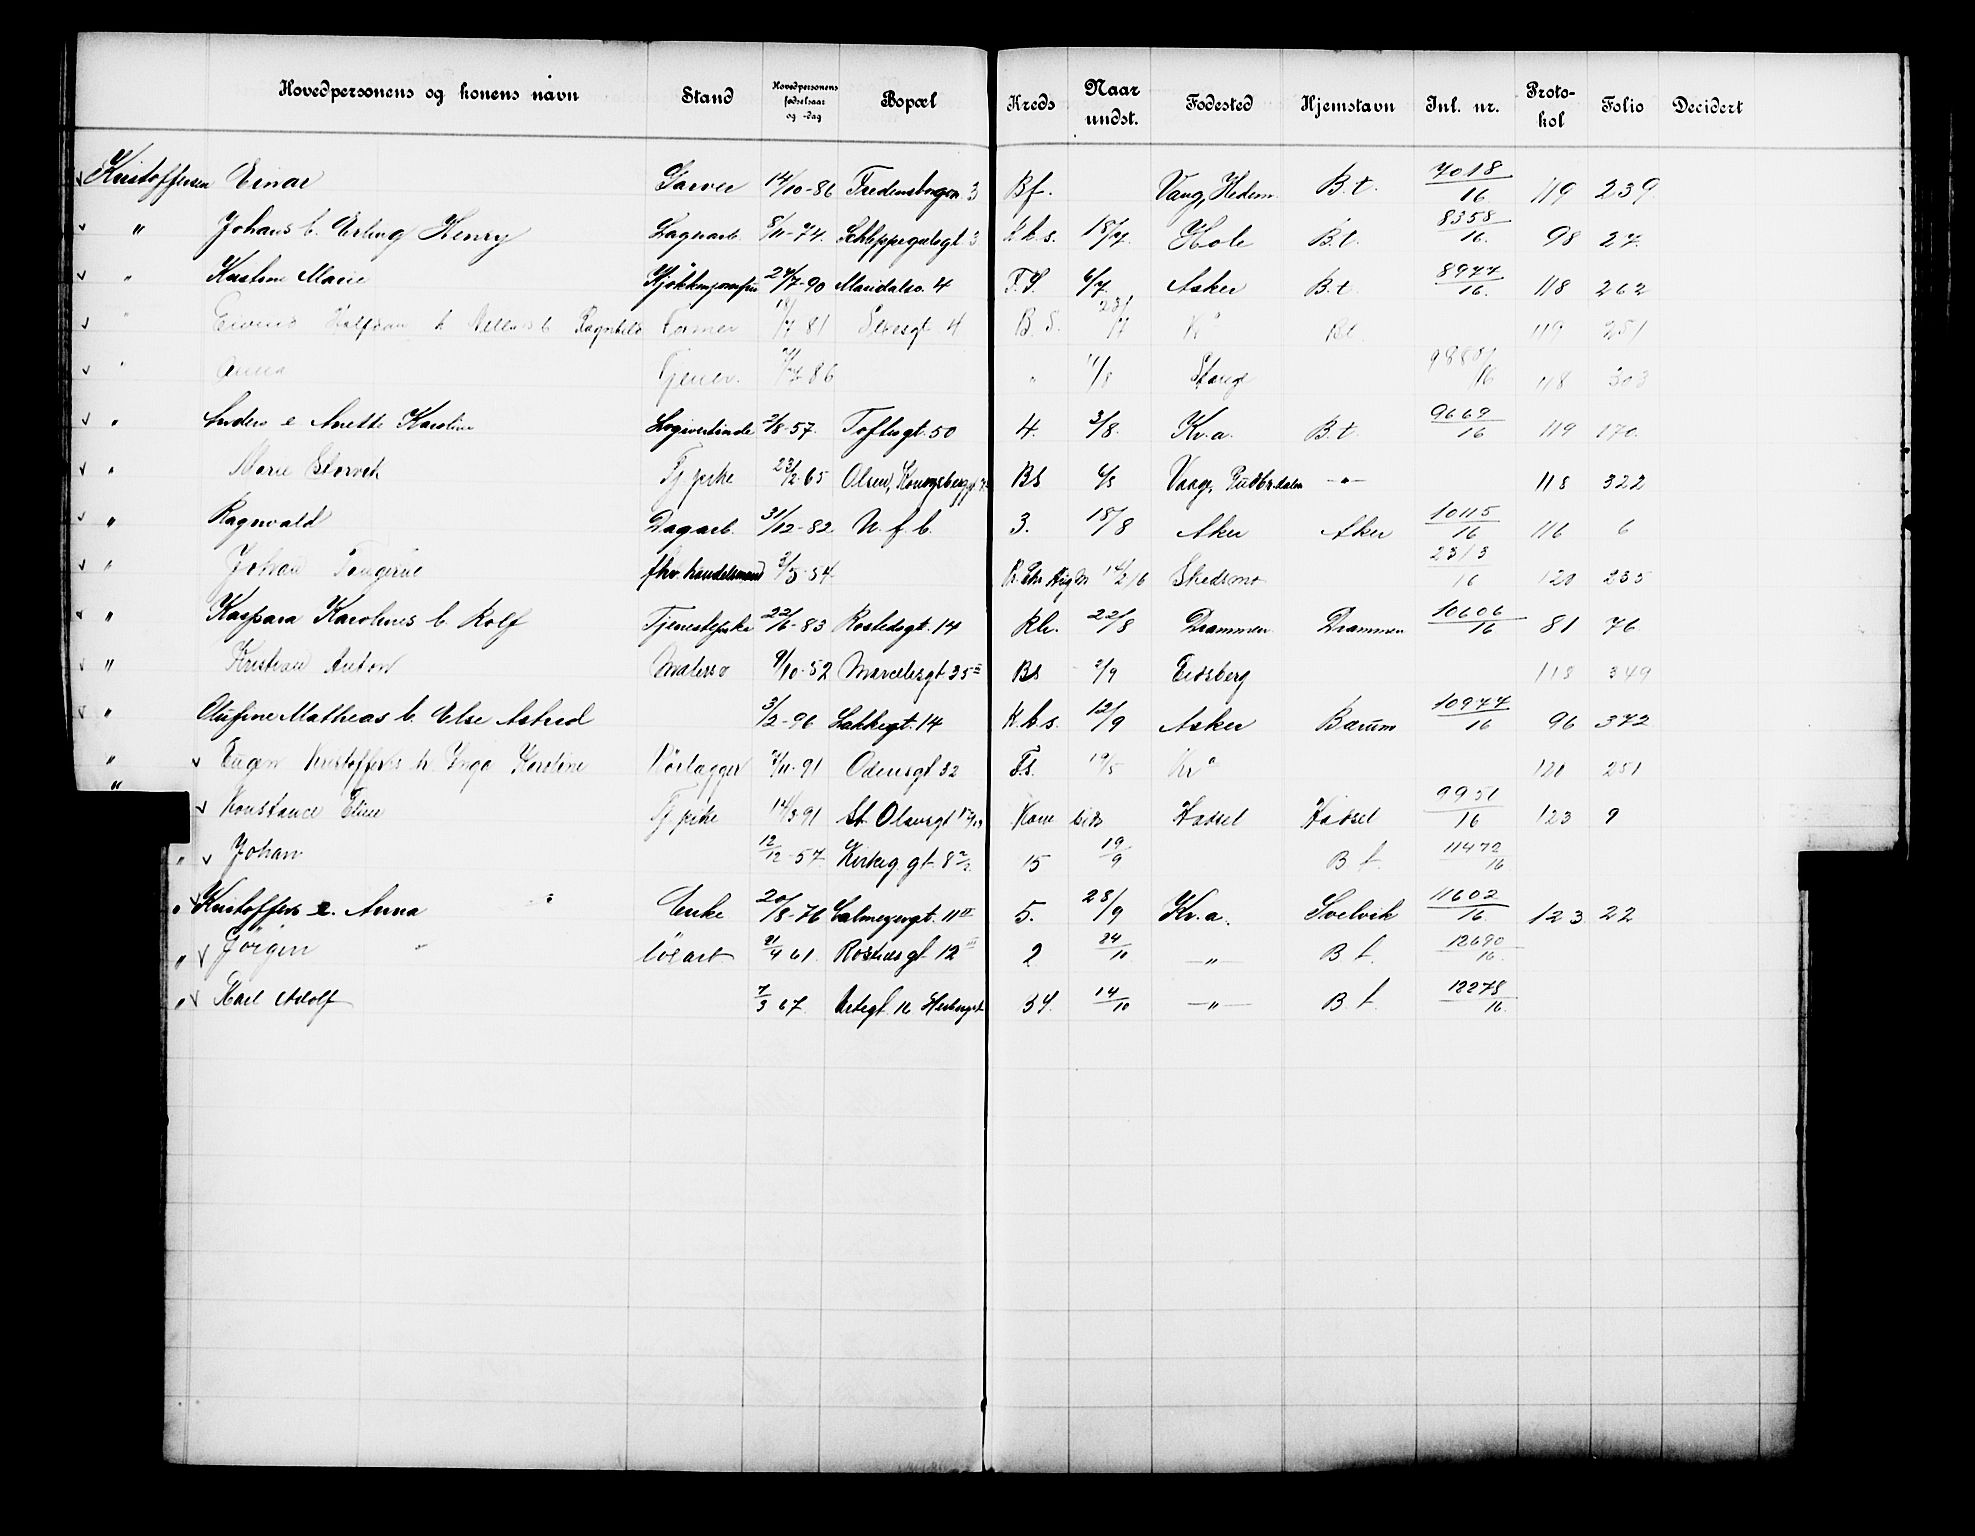 Hovedpersonens og konens navn Stand Hovedpersonens fødselsaar og -dag Bopæl Kreds Naar undst. Fødested Hjemstavn Inl. nr. Proto-kol Folio Decidert
Kristoffersen Einar Garver 14/10-86 Fredensborgvn. 3 Bf. Vang, Hedem. B.t. 7018/16 119 239
" Johans b. Erling Henry Lagerarb. 8/11-74. Schleppegrelsgt 3 K.k.s. 18/7. Hole B.t. 8358/16. 98 27.
" Kristine Marie 24/7-90 Maridalsv. 4 F.S. 6/7. Asker B.t. 8977/16. 118 262
" Eivind Halfdan Ragnhild Former 81 4 B.S. Kr a Bt. 119 251
" Anna Tjener. 86 " 11/8 Stange 118 303
" Anders e Anette Karoline Logivertinde 2/8-57. Toftesgt. 50 4. 3/8. Kr.a. B.t. 9669/16 119 170.
" Marie Storvik Tj pike 23/2-65 Olsen, Kongsberggt BS 6/8 Vaag, Gudbr.dalen -"- 118 322
" Ragnvald Dagarb. 31/12-82 U. f. b. 3. 18/8 Aker Aker 10115/16 116 6
" Johan Tangerud fhv. handelsmand 2/5-54. 14/2 16 Skedsmo 2313/16 120 235
" Kaspara Karolines b. Rolf Tjenestepike 22/6-83 Rostedsgt. 14 Kh. 22/8 Drammen Drammen 10606/16 81 76
" Kristian Anton Malersv 9/10-52 Marcelesgt 35 II BS 2/9 Eidsberg 118 349
" Olufine Mathias b. Else Astrid 3/2-96 Lakkegt. 14 K.k.s. 12/9 Asker Bærum 10977/16 96 372
" Eugen Kristoffer h. Inga Karoline Rørlægger 11-91 Odensgt 32 F.s. 19/5 Kr a 120 251
" Konstance Eline Tj pike 14/3 91 St. Olavsgt Hadsel Hadsel 9951/16 123 9
" Johan 12/12-57 Kirkeg. gt. 8 15 19/9 B t. 11472/16
" Kristoffers e. Anna " Enke 20/8-76 Calmeyergt. 11 II 5. 28/9 Kr.a. Svelvik 11602/16. 123 22
" Jørgen " løsarb 21/4 61. Rostedsgt 12 III 2 24/10 -"- B t. 12690/16.
" Karl Adolf 7/3 67. 34. 14/10 -"- B. t. 12278/16.